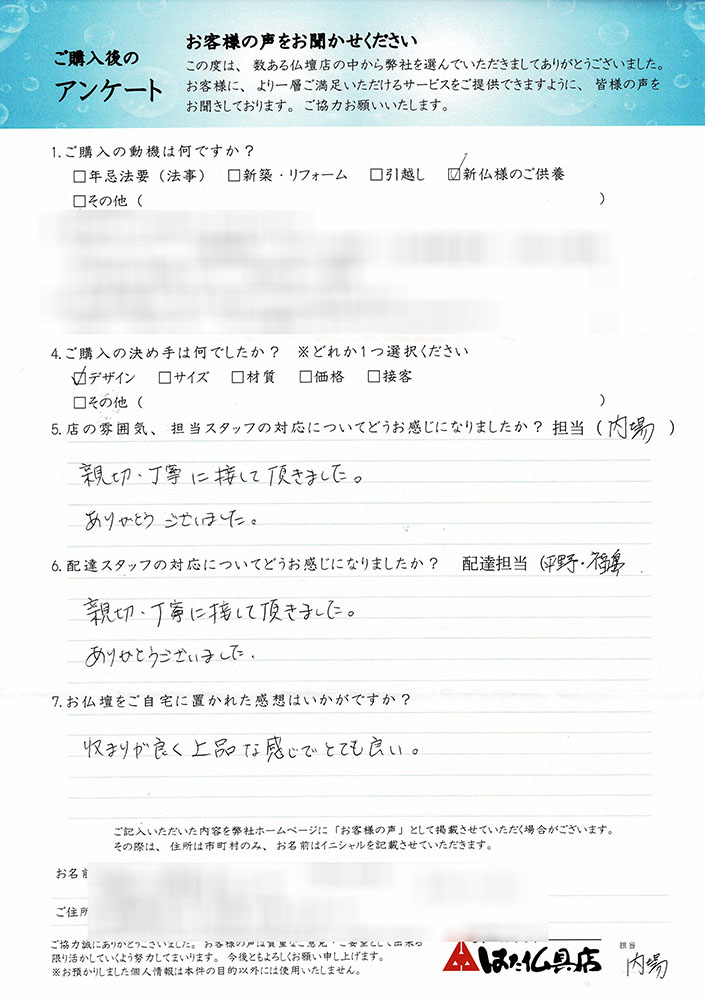 ご購入後の
アンケート
お客様の声をお聞かせください
この度は、数ある仏壇店の中から弊社を選んでいただきましてありがとうございました。
お客様に、より一層ご満足いただけるサービスをご提供できますように、皆様の声を
お聞きしております。ご協力お願いいたします。
1.ご購入の動機は何ですか？
□年忌法要（法事） □新築・リフォーム □引越し ☑新仏様のご供養
□その他（ ）
4.ご購入の決め手は何でしたか？ ※どれか1つ選択ください
☑デザイン □サイズ □材質 □価格 □接客
□その他（ ）
5.店の雰囲気、担当スタッフの対応についてどうお感じになりましたか？担当（内場）
親切・丁寧に接して頂きました。
ありがとうございました。
6.配達スタッフの対応についてどうお感じになりましたか？ 配達担当（平野・福島
親切・丁寧に接して頂きました。
ありがとうございました.
7.お仏壇をご自宅に置かれた感想はいかがですか？
収まりが良く上品な感じでとても良い。
ご記入いただいた内容を弊社ホームページに「お客様の声」として掲載させていただく場合がございます。
その際は、住所は市町村のみ、お名前はイニシャルを記載させていただきます。
お名前
ご住所
ご協力誠にありがとうございました。お客様の声は貴重なご意見・ご要望として出来る
限り活かしていくよう努力してまいります。今後ともよろしくお願い申し上げます。
※お預かりしました個人情報は本件の目的以外には使用いたしません。
はた仏具店
担当
内場